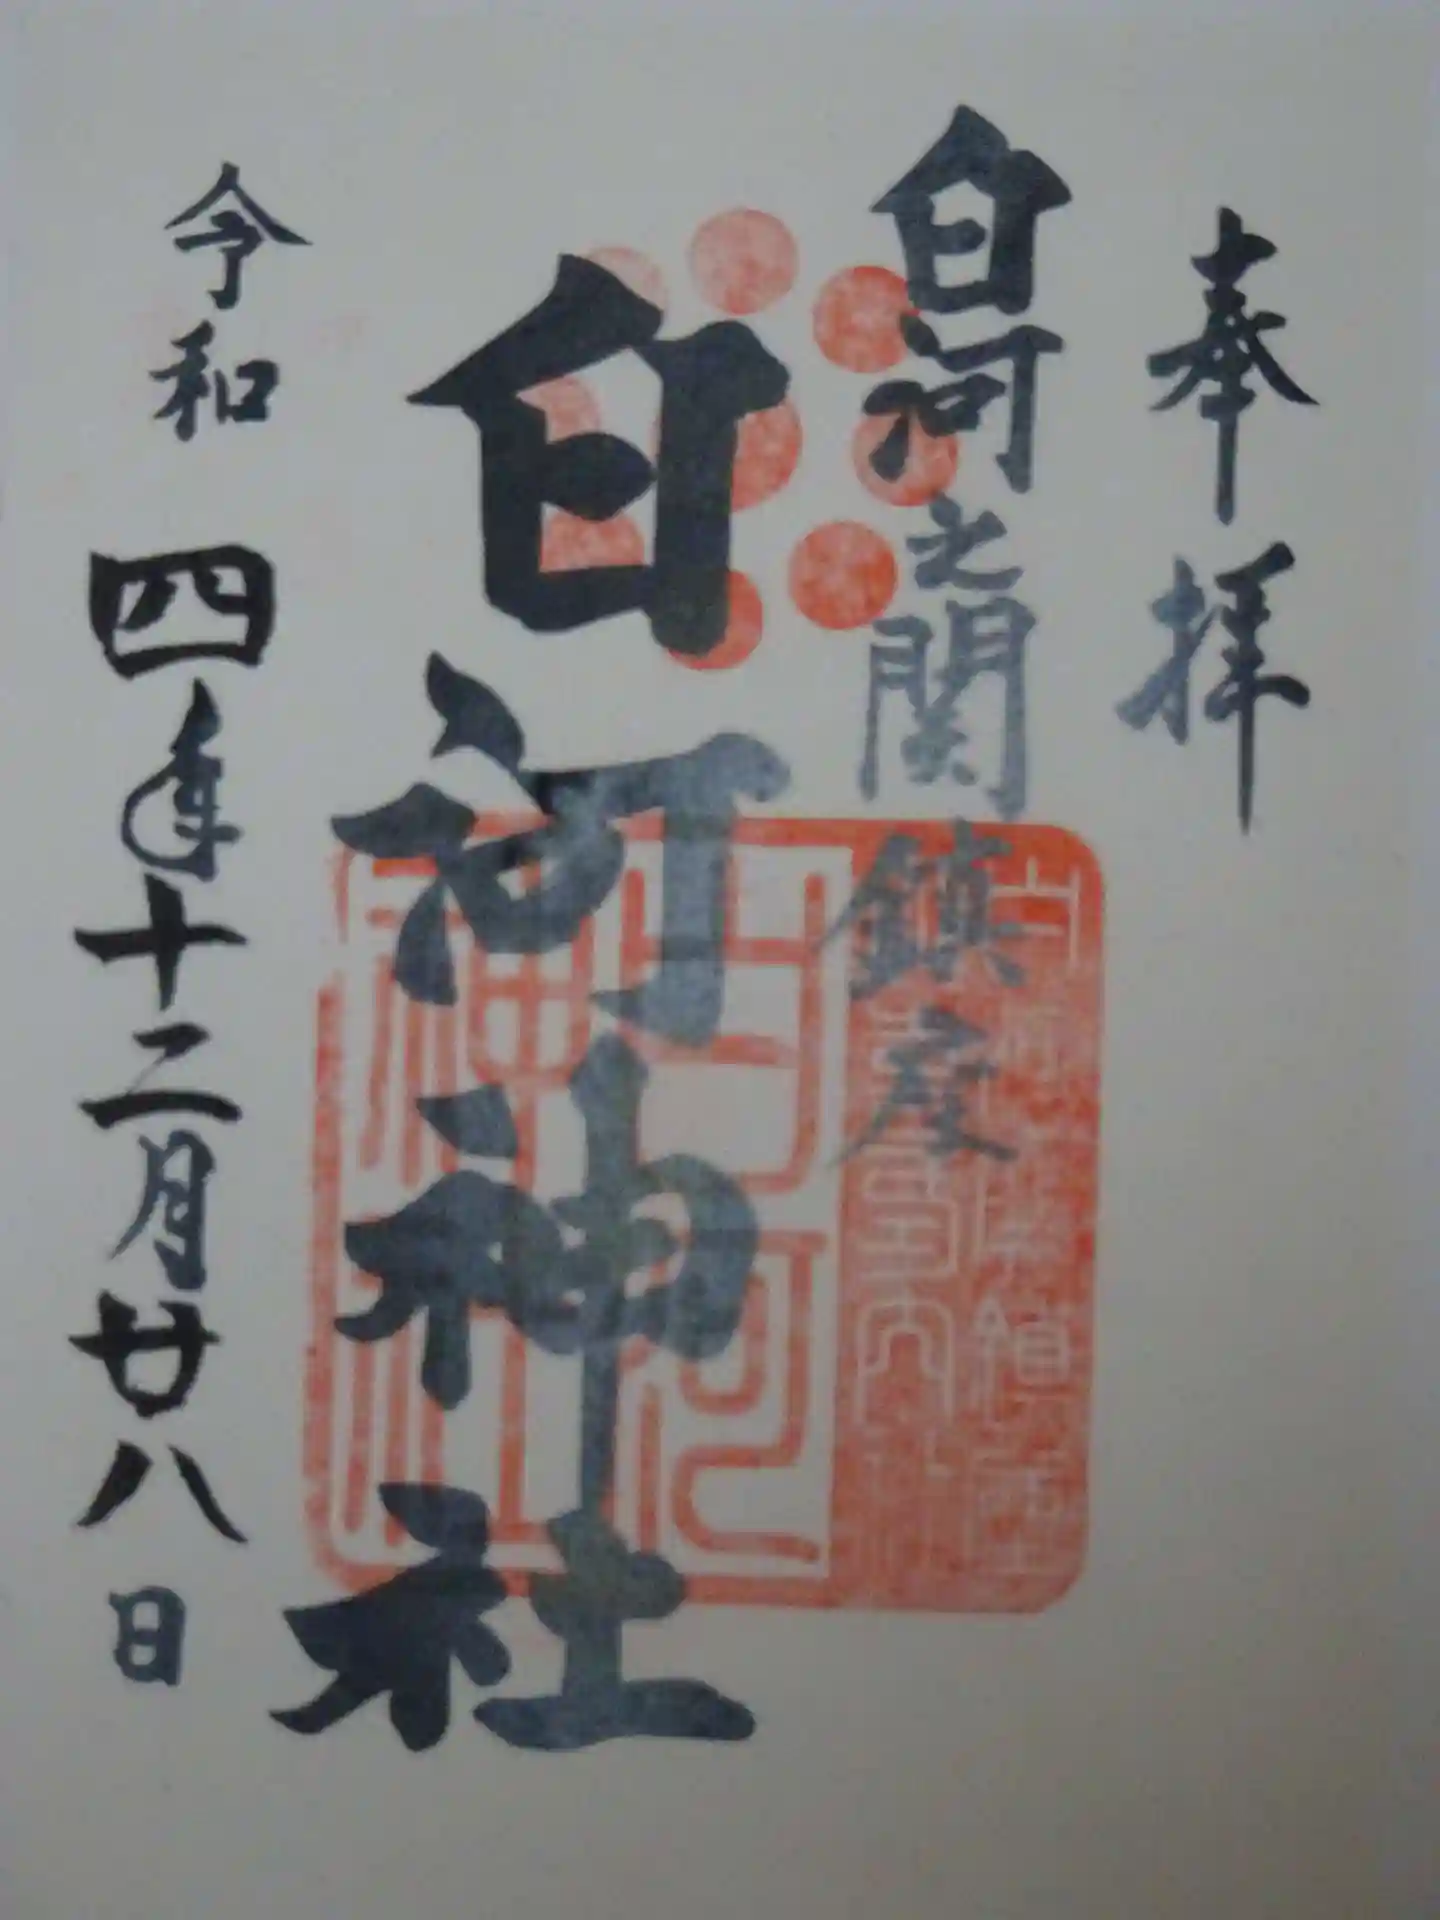 奉拝
白河之関鎮座
白河神社
令和四年十二月廿八日
白河神社